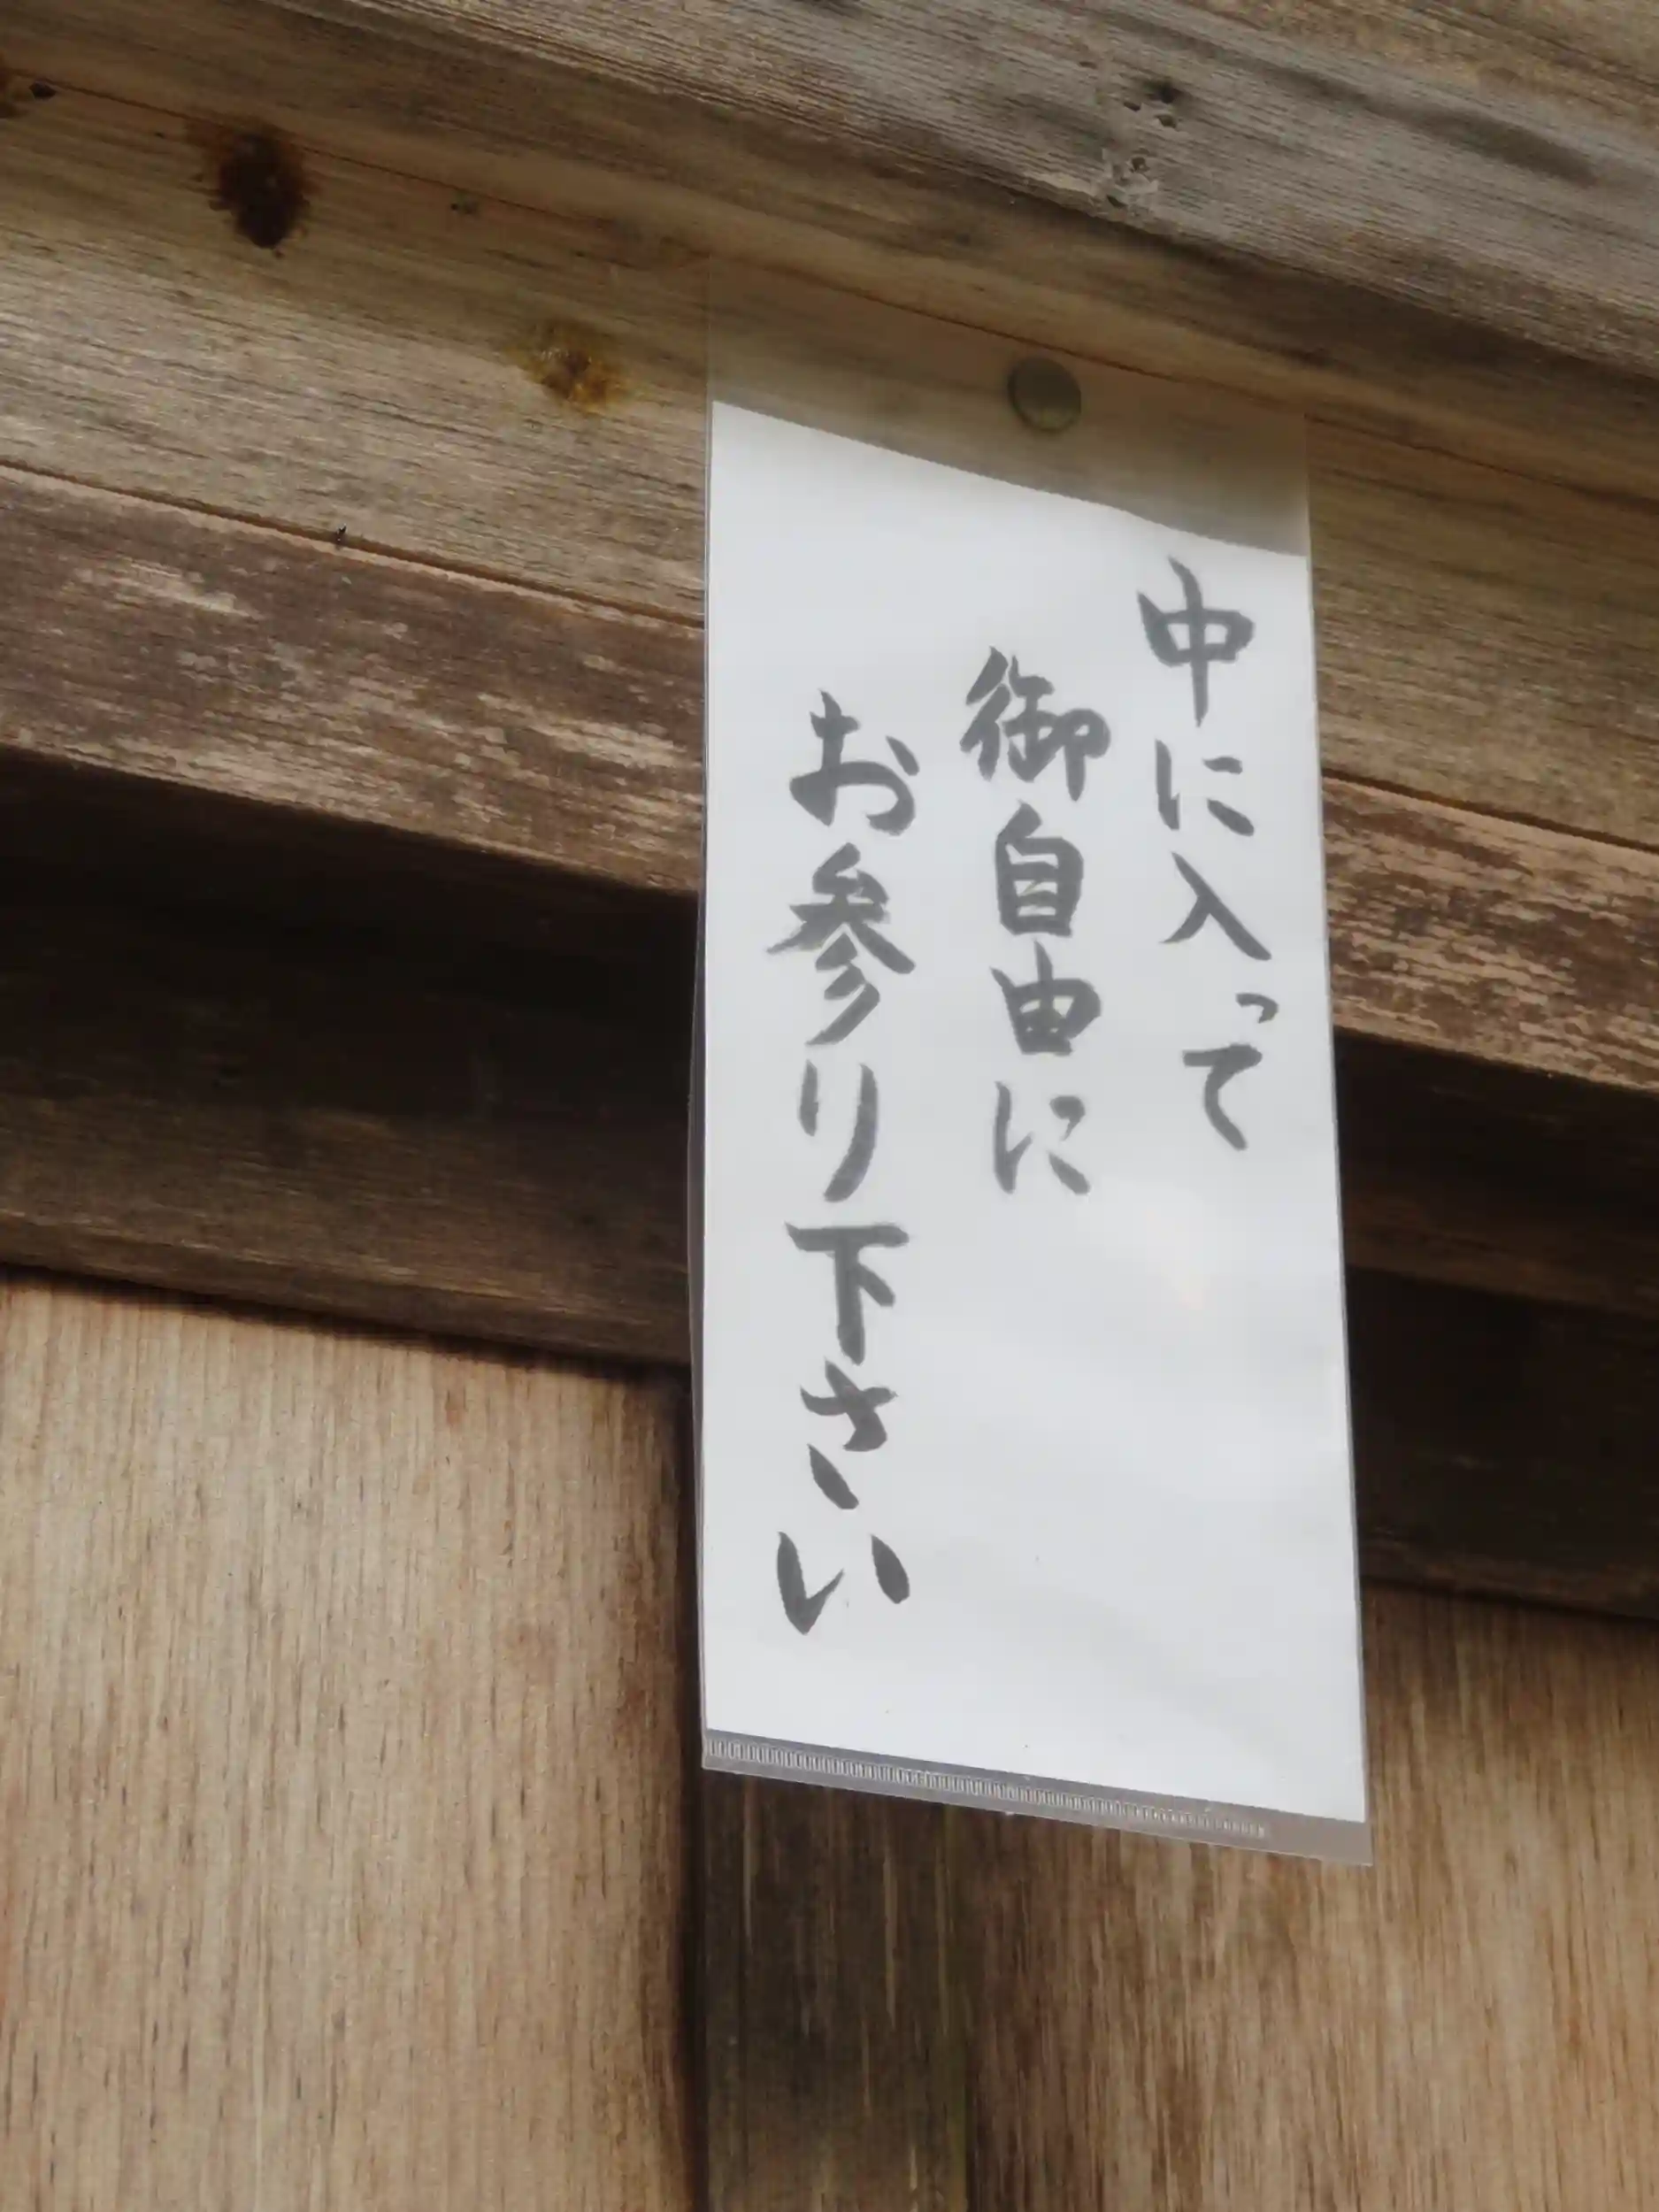 中に入って
御自由に
お参り下さい